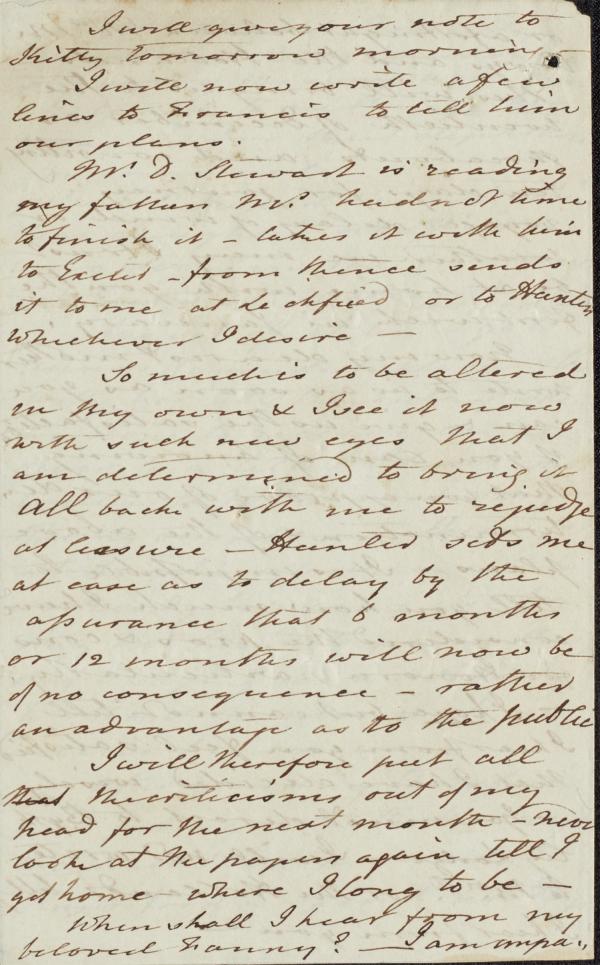 I will give your note to
Kitty tomorrow morning –
I will now write a few
lines to Francis to tell him
our plans.
Mr. D. Stewart is reading
my father Ms. hadn't time
to finish it – takes it with him
to Exeter – from thence sends
it to me at Lechfied or to Hunter
whichever I desire —
So much is to be altered
in my own & I see it now
with such new eyes that I
am determined to bring it
all back with me to rejudge
at leasure – Hunter sets me
at ease as to delay by the
assurance that 6 months
or 12 months will now be
of no consequence – rather
an advantage as to the public
I will therefore put all
that the criticisms out of my
head for the next month – never
look at the papers again till I
get home – where I long to be –
When shall I hear from my
beloved Fanny? — I am impa:,